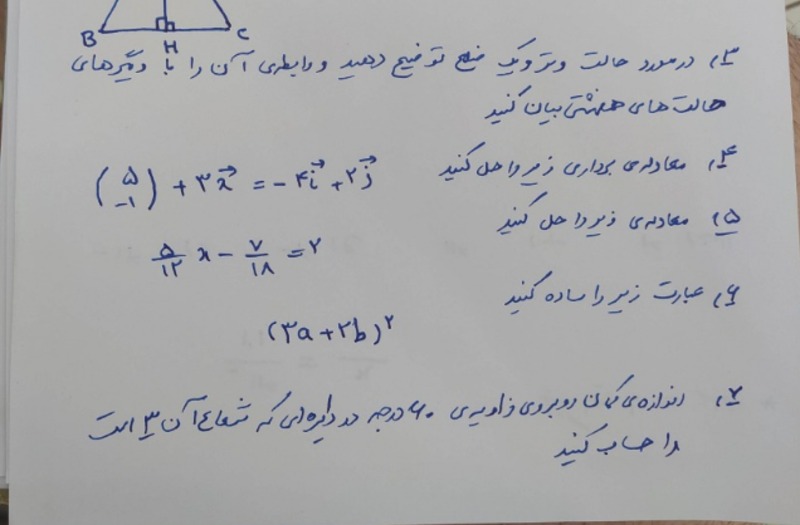 B H C
۳) در مورد حالت وتر و یک ضلع توضیح دهید و رابطه‌ی آن را با دیگر‌های
حالت های همنهشتی بیان کنید
۴) معادله‌ی برداری زیر را حل کنید
(۵ -۱) + ۳x⃗ = -۴i⃗ + ۲j⃗
۵) معادله‌ی زیر را حل کنید
۵/۱۲ x - ۷/۱۸ = ۲
۶) عبارت زیر را ساده کنید
(۳a + ۲b)^۲
۷) اندازه‌ی کمان روبروی زاویه‌ی ۶۰ درجه در دایره‌ای که شعاع آن ۳ است
را حساب کنید